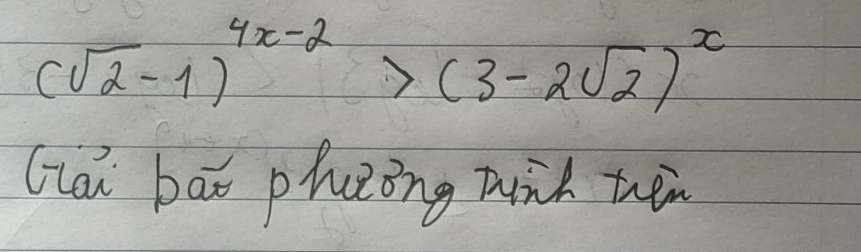 (√2-1)^{4x-2} > (3-2√2)^x
Giải bất phương trình trên